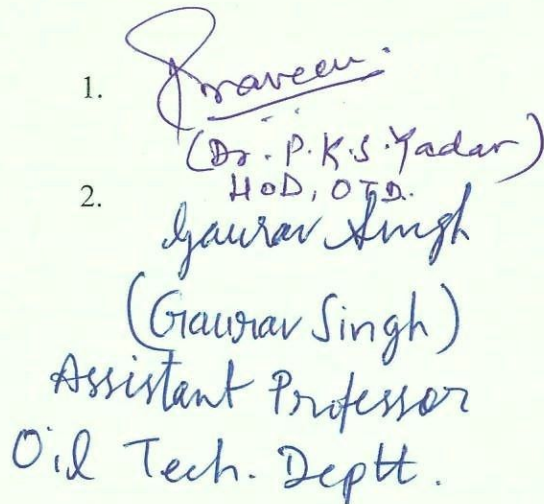 1. Praveen.
(Dr. P.K.S. Yadav)
HOD, OTD.
2. Gaurav Singh
(Gaurav Singh)
Assistant Professor
Oil Tech. Deptt.